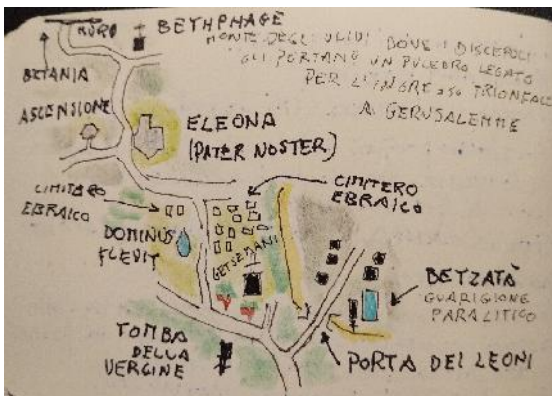 MURO
BETHPHAGÈ
MONTE DEGLI ULIVI DOVE I DISCEPOLI
GLI PORTANO UN PULEDRO LEGATO
PER L'INGRESSO TRIONFALE
A GERUSALEMME
BETANIA
ASCENSIONE
ELEONA
(PATER NOSTER)
CIMITERO
EBRAICO
CIMITERO
EBRAICO
DOMINUS
FLEVIT
GETSEMANI
BETZATÀ
GUARIGIONE
PARALITICO
TOMBA
DELLA
VERGINE
PORTA DEI LEONI